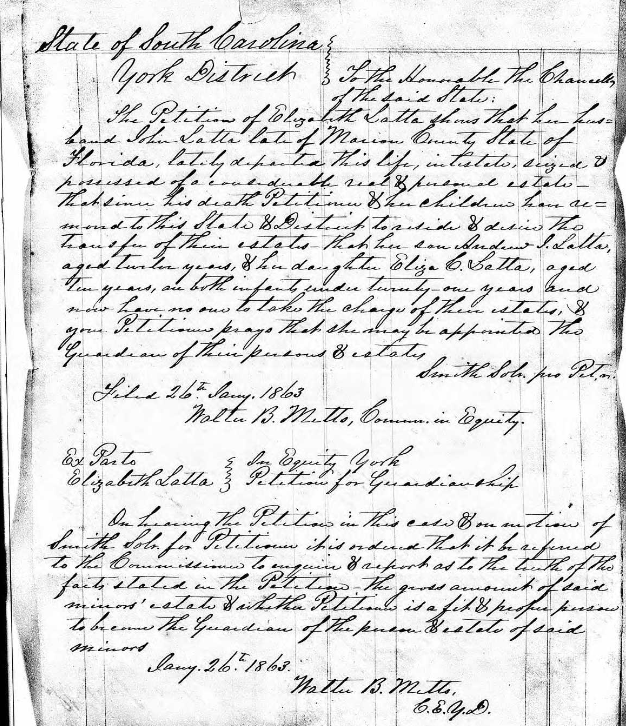 State of South Carolina
York District
To the Honorable the Chancellor
of the said State:
The Petition of Elizabeth Latta shows that her hus=
band John Latta late of Marion County State of
Florida, lately departed this life, intestate, seized &
possessed of a considerable real & personal estate—
that since his death Petitioner & her children have re=
moved to this State & District to reside & desire the
transfer of their estates— that her son Andrew J. Latta,
aged twelve years, & her daughter Eliza C. Latta, aged
ten years, are both infants under twenty-one years and
now have no one to take the charge of their estates, &
your Petitioner prays that she may be appointed the
Guardian of their persons & estates
Smith Solr. pro Petr.
Filed 26th Jany. 1863
Walter B. Metts, Comm. in Equity.
Ex Parte
Elizabeth Latta
In Equity York
Petition for Guardianship
On hearing the Petition in this case & on motion of
Smith Solr. for Petitioner it is ordered that it be referred
to the Commissioner to enquire & report as to the truth of the
facts stated in the Petition— the gross amount of said
minors' estate & whether Petitioner is a fit & proper person
to become the Guardian of the person & estate of said
minors
Jany. 26th 1863.
Walter B. Metts,
C.E.Y.D.